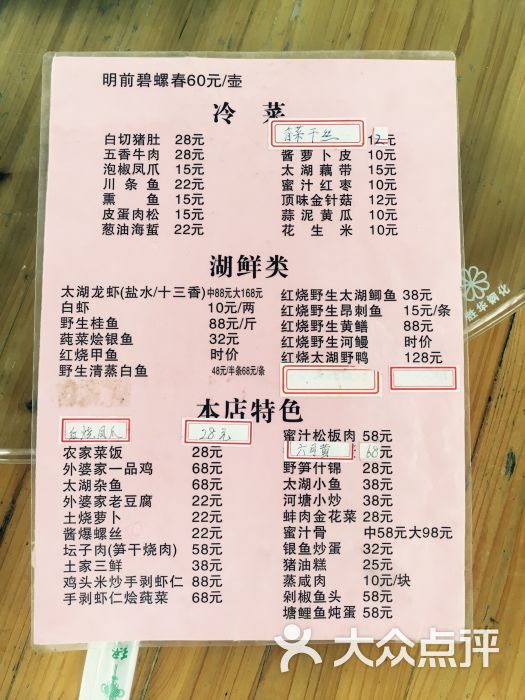 明前碧螺春60元/壶
冷 菜
白切猪肚 28元
五香牛肉 28元
泡椒凤爪 15元
川条鱼 22元
熏鱼 15元
皮蛋肉松 15元
葱油海蜇 22元
香菜干丝 12元
酱萝卜皮 10元
太湖藕带 15元
蜜汁红枣 10元
顶味金针菇 12元
蒜泥黄瓜 10元
花生米 10元
湖鲜类
太湖龙虾(盐水/十三香)中88元大168元
白虾 10元/两
野生桂鱼 88元/斤
莼菜烩银鱼 32元
红烧甲鱼 时价
野生清蒸白鱼 48元/半条68元/条
红烧野生太湖鲫鱼 38元
红烧野生昂刺鱼 15元/条
红烧野生黄鳝 88元
红烧野生河鳗 时价
红烧太湖野鸭 128元
本店特色
红烧凤爪 28元
农家菜饭 28元
外婆家一品鸡 68元
太湖杂鱼 68元
外婆家老豆腐 22元
土烧萝卜 22元
酱爆螺丝 22元
坛子肉(笋干烧肉) 58元
土家三鲜 38元
鸡头米炒手剥虾仁 88元
手剥虾仁烩莼菜 68元
蜜汁松板肉 58元
六月黄 68元
野笋什锦 28元
太湖小鱼 38元
河塘小炒 38元
蚌肉金花菜 28元
蜜汁骨 中58元大98元
银鱼炒蛋 32元
猪油糕 25元
蒸咸肉 10元/块
剁椒鱼头 58元
塘鲤鱼炖蛋 58元
大众点评